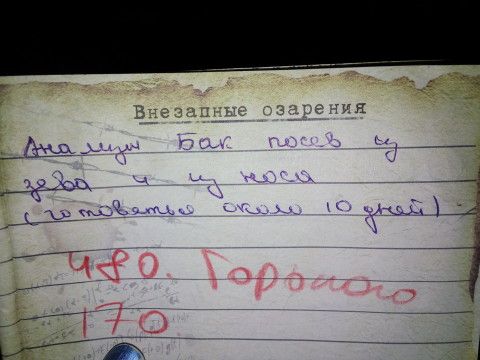 Внезапные озарения
Анализы Бак посев из
зева и из носа
(готовяться около 10 дней)
480. Горького
170